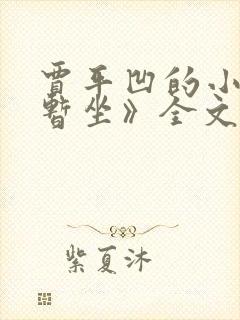 贾平凹的小
暂坐》全文
紫夏沐